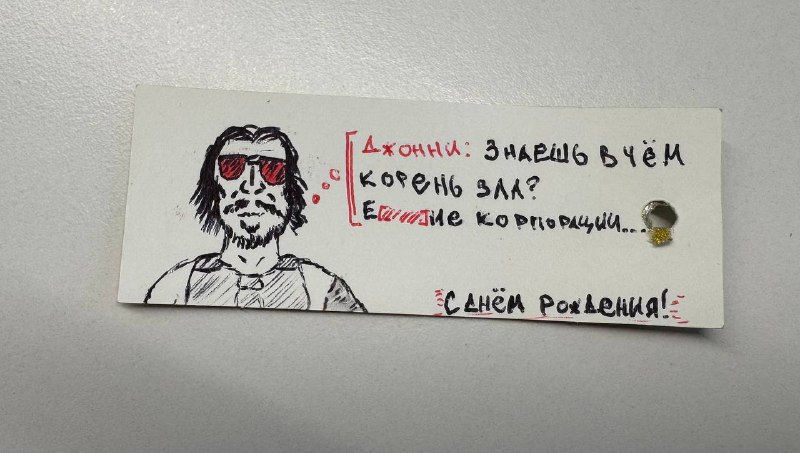 Джонни: Знаешь в чём
корень зла?
Е ие корпорации...
С днём рождения!